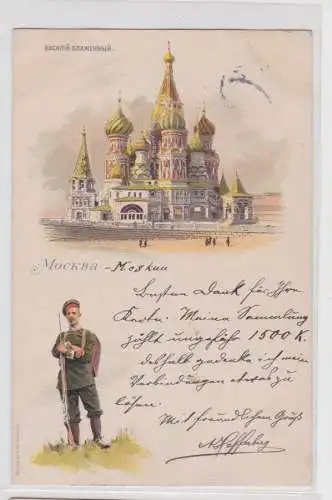 ВАСИЛІЙ БЛАЖЕННЫЙ.
Москва - Moskau
Besten Dank für Ihre
Karte. Meine Sammlung
zählt ungefähr 1500 K.
deshalb gedenke ich mein
Verbindungen etwas zu
lösen.
Mit freundlichem Gruß